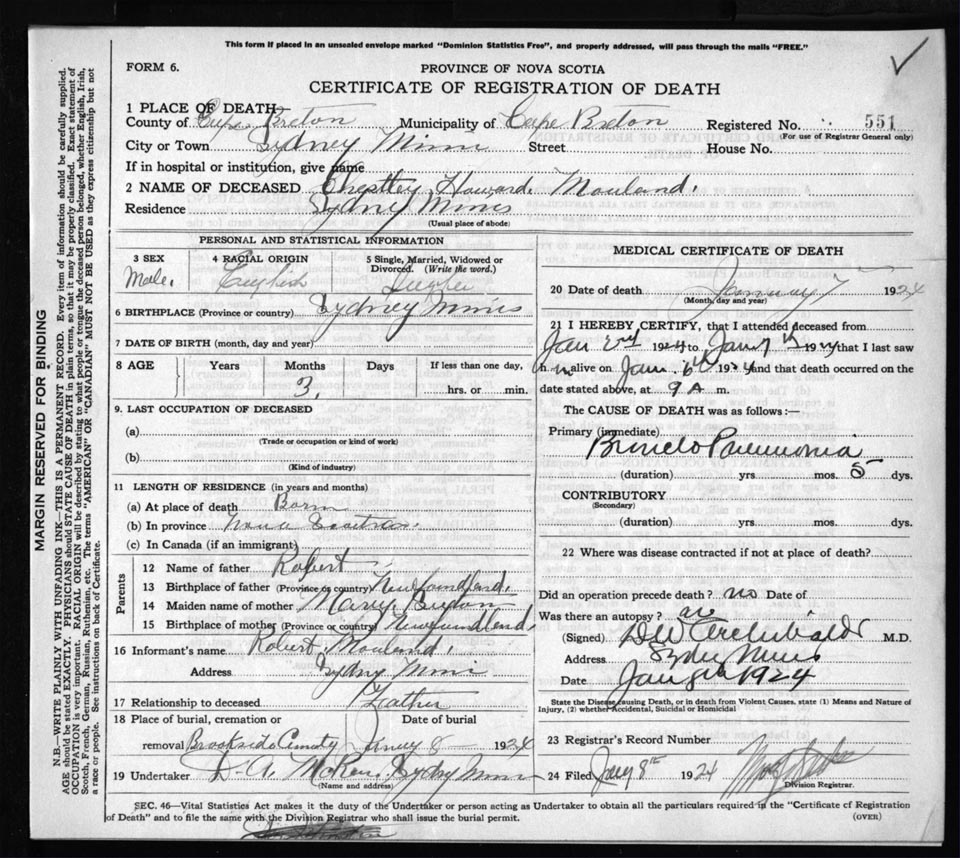 This form if placed in an unsealed envelope marked "Dominion Statistics Free", and properly addressed, will pass through the mails "FREE."
FORM 6.
PROVINCE OF NOVA SCOTIA
CERTIFICATE OF REGISTRATION OF DEATH
1 PLACE OF DEATH
County of Cape Breton Municipality of Cape Breton Registered No. 551
(For use of Registrar General only)
City or Town Sydney Mines Street House No.
If in hospital or institution, give name
2 NAME OF DECEASED Chestley Howard Mouland.
Residence Sydney Mines
(Usual place of abode)
PERSONAL AND STATISTICAL INFORMATION
3 SEX 4 RACIAL ORIGIN 5 Single, Married, Widowed or
Divorced. (Write the word.)
Male. English Single
6 BIRTHPLACE (Province or country) Sydney Mines
7 DATE OF BIRTH (month, day and year)
8 AGE Years Months Days If less than one day,
3. hrs. or min.
9. LAST OCCUPATION OF DECEASED
(a)
(Trade or occupation or kind of work)
(b)
(Kind of industry)
11 LENGTH OF RESIDENCE (in years and months)
(a) At place of death Born
(b) In province Nova Scotia
(c) In Canada (if an immigrant)
Parents
12 Name of father Robert
13 Birthplace of father (Province or country) Newfoundland.
14 Maiden name of mother Mary
15 Birthplace of mother (Province or country) Newfoundland
16 Informant's name Robert Mouland.
Address Sydney Mines
17 Relationship to deceased Feather
18 Place of burial, cremation or Date of burial
removal Brookside Cemetry Janury 8 1924
19 Undertaker D. A. McRae. Sydney Mines
(Name and address)
MEDICAL CERTIFICATE OF DEATH
20 Date of death January 7 1924
(Month, day and year)
21 I HEREBY CERTIFY, that I attended deceased from
Jan 2nd 1924 to Jan 7th 1924 that I last saw
h m alive on Jan. 6th 1924 and that death occurred on the
date stated above, at 9 A. m.
The CAUSE OF DEATH was as follows:—
Primary (immediate)
Broncho Pneumonia
(duration) yrs mos. 5 dys.
CONTRIBUTORY
(Secondary)
(duration) yrs. mos. dys.
22 Where was disease contracted if not at place of death?
Did an operation precede death? no Date of
Was there an autopsy? no
(Signed) DW Archibald M.D.
Address Sydney Mines
Date Jan 8th 1924
State the Disease causing Death, or in death from Violent Causes, state (1) Means and Nature of
Injury, (2) whether Accidental, Suicidal or Homicidal
23 Registrar's Record Number
24 Filed Jany 8th 1924
Division Registrar.
SEC. 46—Vital Statistics Act makes it the duty of the Undertaker or person acting as Undertaker to obtain all the particulars required in the "Certificate of Registration
of Death" and to file the same with the Division Registrar who shall issue the burial permit.
(OVER)
MARGIN RESERVED FOR BINDING
N.B.—WRITE PLAINLY WITH UNFADING INK—THIS IS A PERMANENT RECORD. Every item of information should be carefully supplied.
AGE should be stated EXACTLY. PHYSICIANS should STATE CAUSE OF DEATH in plain terms, so that it may be properly classified. Exact statement of
OCCUPATION is very important. RACIAL ORIGIN will be described by stating to what people or tongue the deceased person belonged, whether English, Irish,
Scotch, French, German, Russian, Ruthenian, etc. The terms "AMERICAN" OR "CANADIAN" MUST NOT BE USED as they express citizenship but not
a race or people. See instructions on back of Certificate.